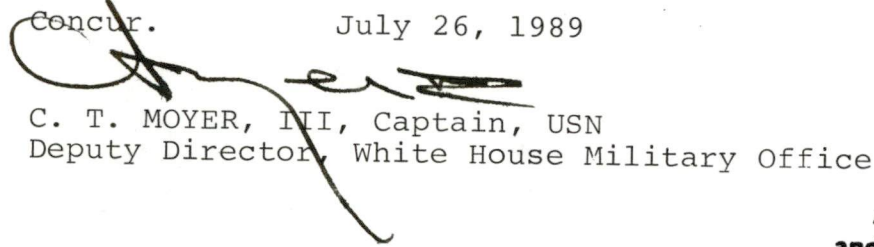 Concur. July 26, 1989
C. T. MOYER, III, Captain, USN
Deputy Director, White House Military Office